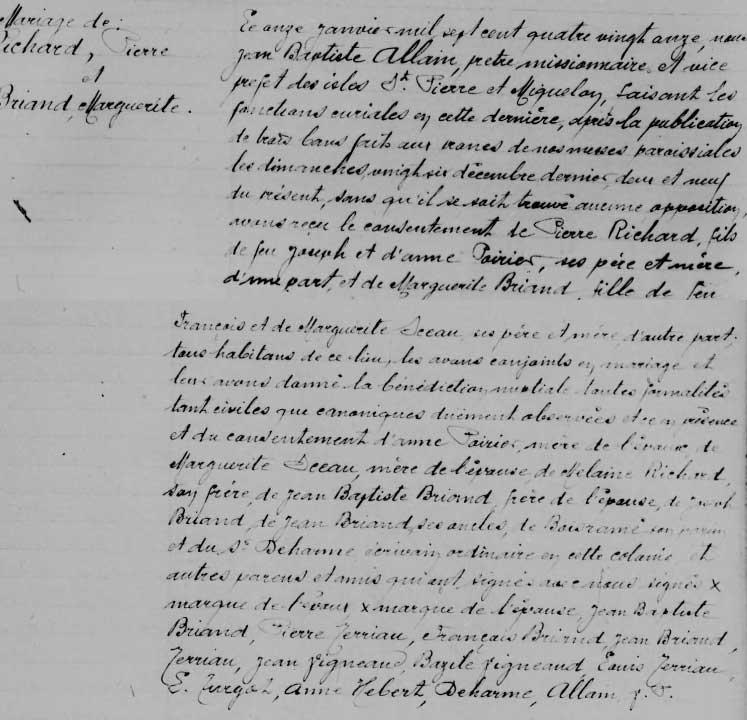 Mariage de:
Richard, Pierre
et
Briand, Marguerite.
Ce onze janvier mil sept cent quatre vingt onze, nous
Jean Baptiste Allain, pretre missionnaire et vice
prefet des isles St. Pierre et Miquelon, faisant les
fonctions curiales en cette dernière, après la publication
de trois bans fait aux prones de nos messes paroissiales
les dimanches vingt six décembre dernier, deux et neuf
du présent, sans qu'il se soit trouvé aucune opposition,
avons reçu le consentement de Pierre Richard, fils
de feu Joseph et d'anne Poirier, ses père et mère,
d'une part, et de Marguerite Briand, fille de feu
François et de Marguerite Sceau, ses père et mère d'autre part,
tous habitans de ce lieu, les avons conjoints en mariage et
leur avons donné la bénédiction nuptiale toutes formalités
tant civiles que canoniques duement observées et ce en présence
et du consentement d'anne Poirier, mère de l'époux, de
Marguerite Sceau, mère de l'épouse, de Melaine Richard,
son frère, de Jean Baptiste Briand, frère de l'épouse, de Joseph
Briand, de Jean Briand, ses oncles, de Boisramé son
et du Sr. Deharme écrivain ordinaire en cette colonie et
autres parens et amis qui ont signés avec nous signés x
marque de l'époux x marque de l'épouse, Jean Baptiste
Briand, Pierre Terriau, François Briand, Jean Briand,
Terriau, Jean Vigneaud, Bazile Vigneaud, Louis Terriau,
E. Turgot, Anne Hebert, Deharme, Allain,